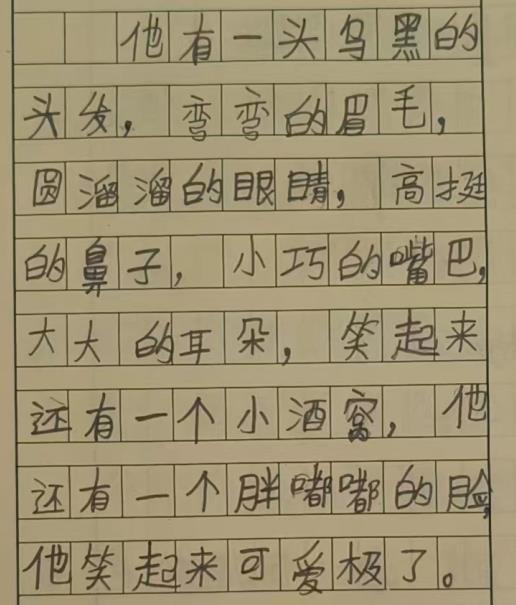 他有一头乌黑的
头发，弯弯的眉毛，
圆溜溜的眼睛，高挺
的鼻子，小巧的嘴巴，
大大的耳朵，笑起来
还有一个小酒窝，他
还有一个胖嘟嘟的脸，
他笑起来可爱极了。